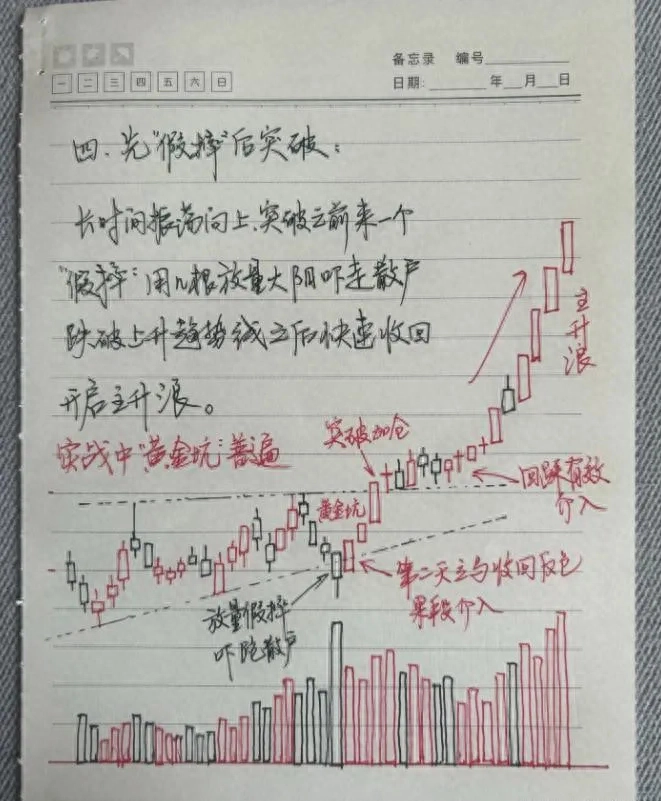 备忘录 编号
一 二 三 四 五 六 日
日期: 年 月 日
四、先"假摔"后突破：
长时间振荡向上、突破之前来一个
"假摔"：用几根放量大阴吓走散户
跌破上升趋势线之后快速收回
开启主升浪。
实战中"黄金坑"普遍
突破加仓
主升浪
黄金坑
回踩有效
介入
第二天立马收回反包
果断介入
放量假摔
吓跑散户